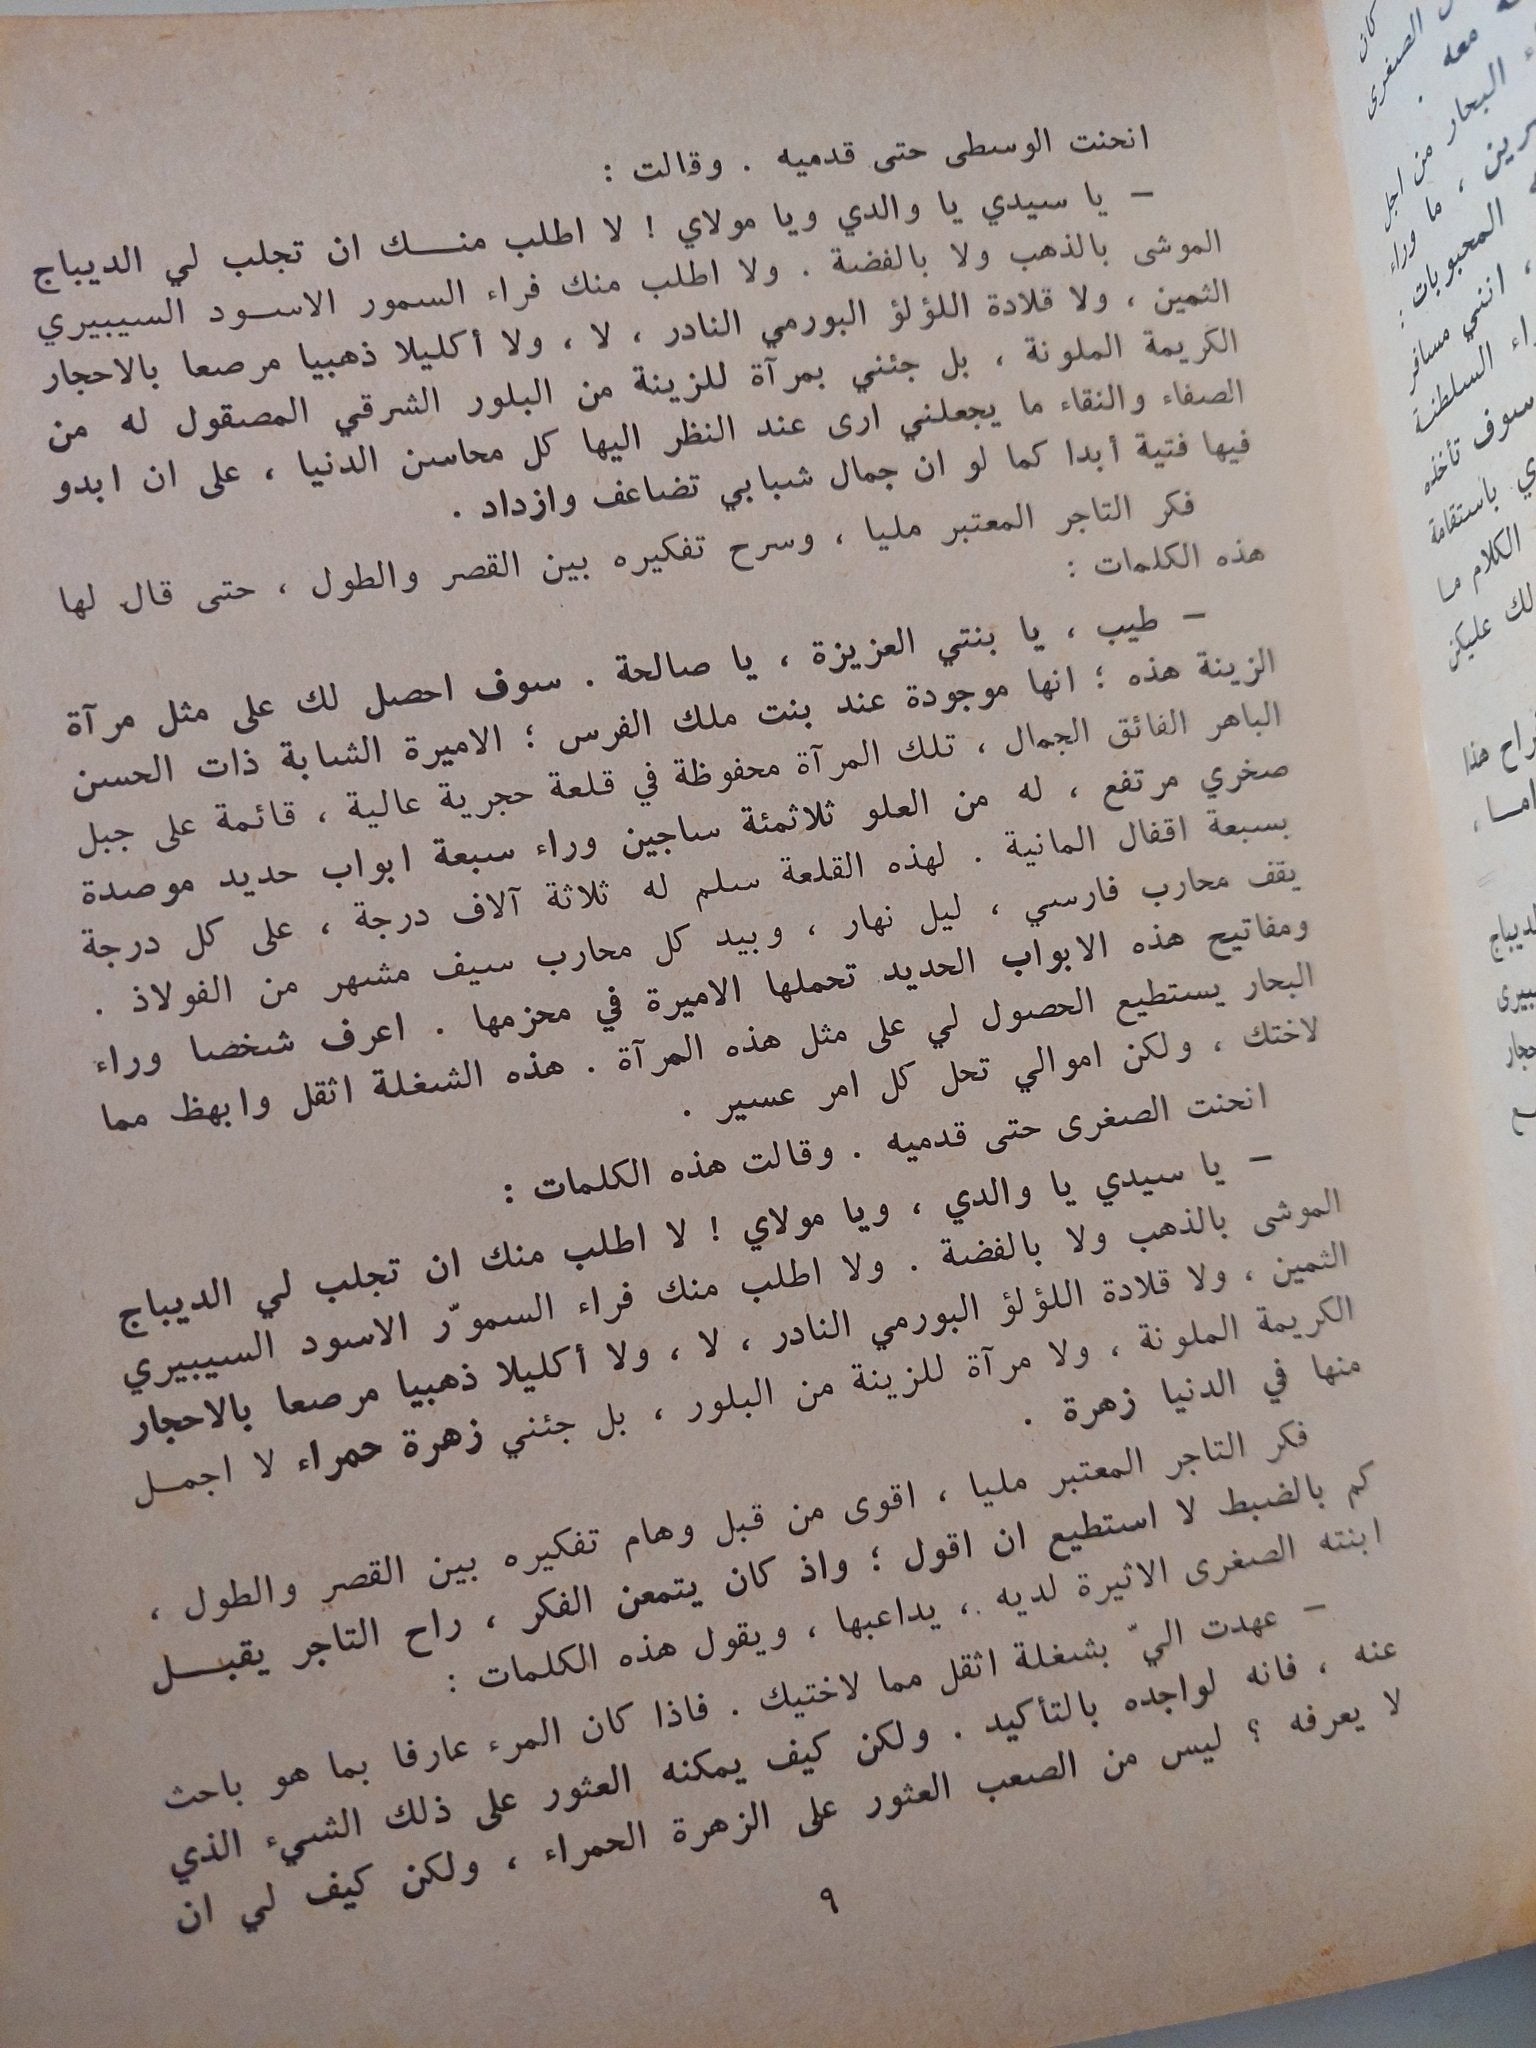 انحنت الوسطى حتى قدميه . وقالت :
– يا سيدي يا والدي ويا مولاي ! لا اطلب منك ان تجلب لي الديباج
الموشى بالذهب ولا بالفضة . ولا اطلب منك فراء السمور الاسود السيبيري
الثمين ، ولا قلادة اللؤلؤ البورمي النادر ، لا ، ولا أكليلا ذهبيا مرصعا بالاحجار
الكريمة الملونة ، بل جئني بمرآة للزينة من البلور الشرقي المصقول له من
الصفاء والنقاء ما يجعلني ارى عند النظر اليها كل محاسن الدنيا ، على ان ابدو
فيها فتية أبدا كما لو ان جمال شبابي تضاعف وازداد .
فكر التاجر المعتبر مليا ، وسرح تفكيره بين القصر والطول ، حتى قال لها
هذه الكلمات :
– طيب ، يا بنتي العزيزة ، يا صالحة . سوف احصل لك على مثل مرآة
الزينة هذه ؛ انها موجودة عند بنت ملك الفرس ؛ الاميرة الشابة ذات الحسن
الباهر الفائق الجمال ، تلك المرآة محفوظة في قلعة حجرية عالية ، قائمة على جبل
صخري مرتفع ، له من العلو ثلاثمئة ساجين وراء سبعة ابواب حديد موصدة
بسبعة اقفال المانية . لهذه القلعة سلم له ثلاثة آلاف درجة ، على كل درجة
يقف محارب فارسي ، ليل نهار ، وبيد كل محارب سيف مشهر من الفولاذ .
ومفاتيح هذه الابواب الحديد تحملها الاميرة في محزمها . اعرف شخصا وراء
البحار يستطيع الحصول لي على مثل هذه المرآة . هذه الشغلة اثقل وابهظ مما
لاختك ، ولكن اموالي تحل كل امر عسير .
انحنت الصغرى حتى قدميه . وقالت هذه الكلمات :
– يا سيدي يا والدي ، ويا مولاي ! لا اطلب منك ان تجلب لي الديباج
الموشى بالذهب ولا بالفضة . ولا اطلب منك فراء السموّر الاسود السيبيري
الثمين ، ولا قلادة اللؤلؤ البورمي النادر ، لا ، ولا أكليلا ذهبيا مرصعا بالاحجار
الكريمة الملونة ، ولا مرآة للزينة من البلور ، بل جئني زهرة حمراء لا اجمل
منها في الدنيا زهرة .
فكر التاجر المعتبر مليا ، اقوى من قبل وهام تفكيره بين القصر والطول ،
كم بالضبط لا استطيع ان اقول ؛ واذ كان يتمعن الفكر ، راح التاجر يقبل
ابنته الصغرى الاثيرة لديه ، يداعبها ، ويقول هذه الكلمات :
– عهدت اليّ بشغلة اثقل مما لاختيك . فاذا كان المرء عارفا بما هو باحث
عنه ، فانه لواجده بالتأكيد . ولكن كيف يمكنه العثور على ذلك الشيء الذي
لا يعرفه ؟ ليس من الصعب العثور على الزهرة الحمراء ، ولكن كيف لي ان
٩
كان
الصغرى
معه .
البحار من اجل
، ما وراء
المحبوبات :
، انني مسافر
السلطنة
سوف تأخذه
باستقامة
الكلام ما
عليكن
هذا
الديباج